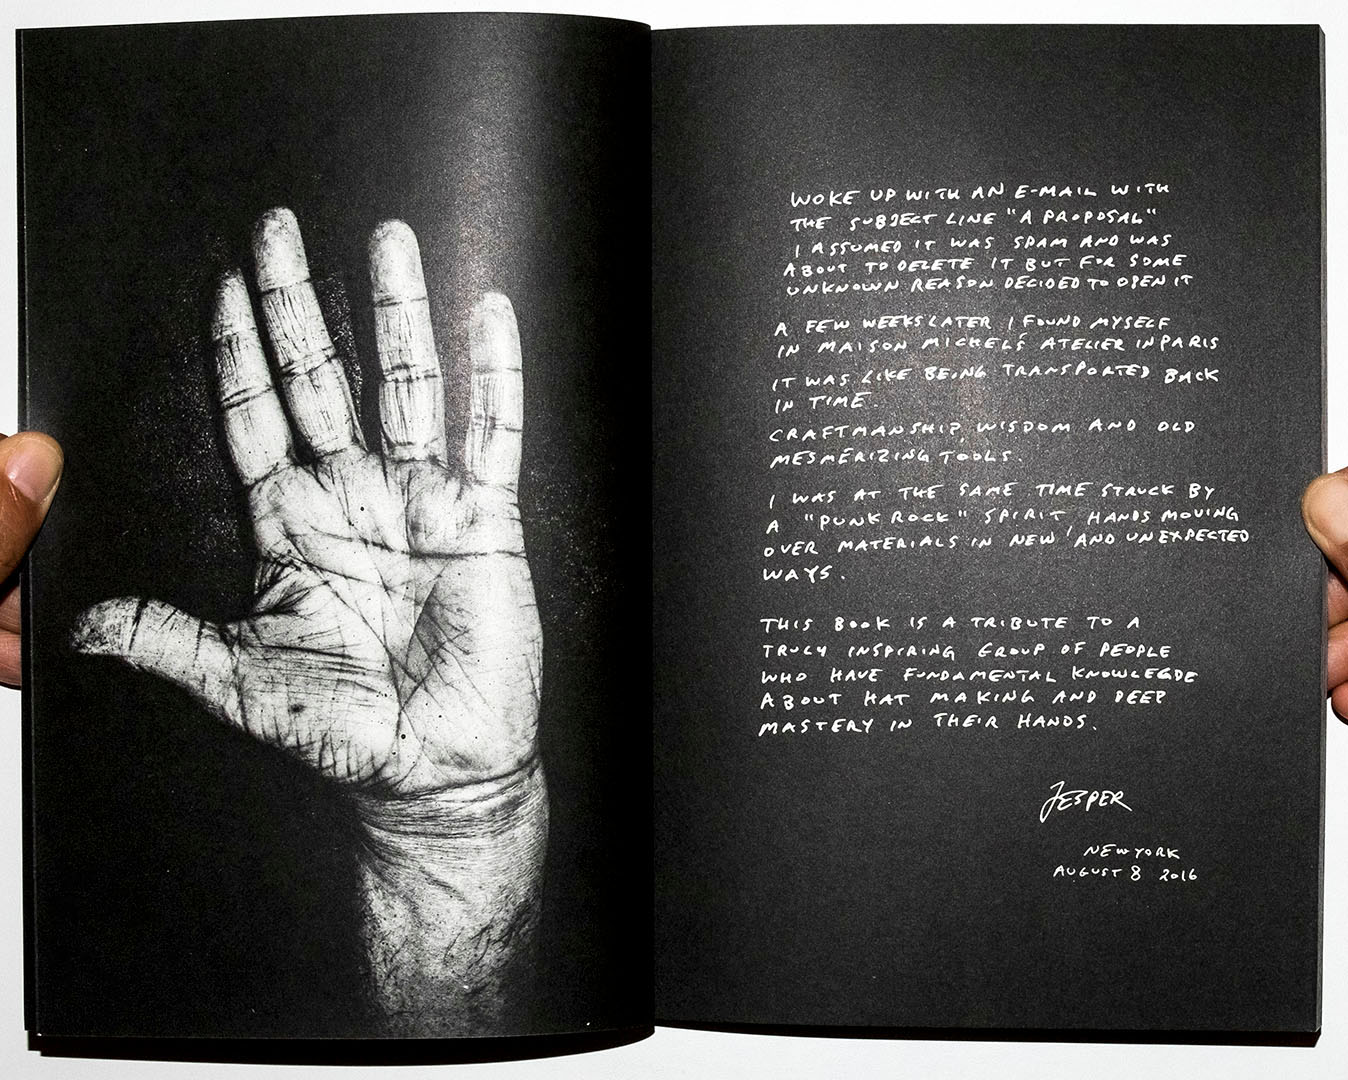 WOKE UP WITH AN E-MAIL WITH
THE SUBJECT LINE "A PROPOSAL"
I ASSUMED IT WAS SPAM AND WAS
ABOUT TO DELETE IT BUT FOR SOME
UNKNOWN REASON DECIDED TO OPEN IT
A FEW WEEKS LATER I FOUND MYSELF
IN MAISON MICHEL'S ATELIER IN PARIS
IT WAS LIKE BEING TRANSPORTED BACK
IN TIME.
CRAFTMANSHIP, WISDOM AND OLD
MESMERIZING TOOLS.
I WAS AT THE SAME TIME STRUCK BY
A "PUNK ROCK" SPIRIT, HANDS MOVING
OVER MATERIALS IN NEW AND UNEXPECTED
WAYS.
THIS BOOK IS A TRIBUTE TO A
TRULY INSPIRING GROUP OF PEOPLE
WHO HAVE FUNDAMENTAL KNOWLEGDE
ABOUT HAT MAKING AND DEEP
MASTERY IN THEIR HANDS.
JESPER
NEW YORK
AUGUST 8 2016